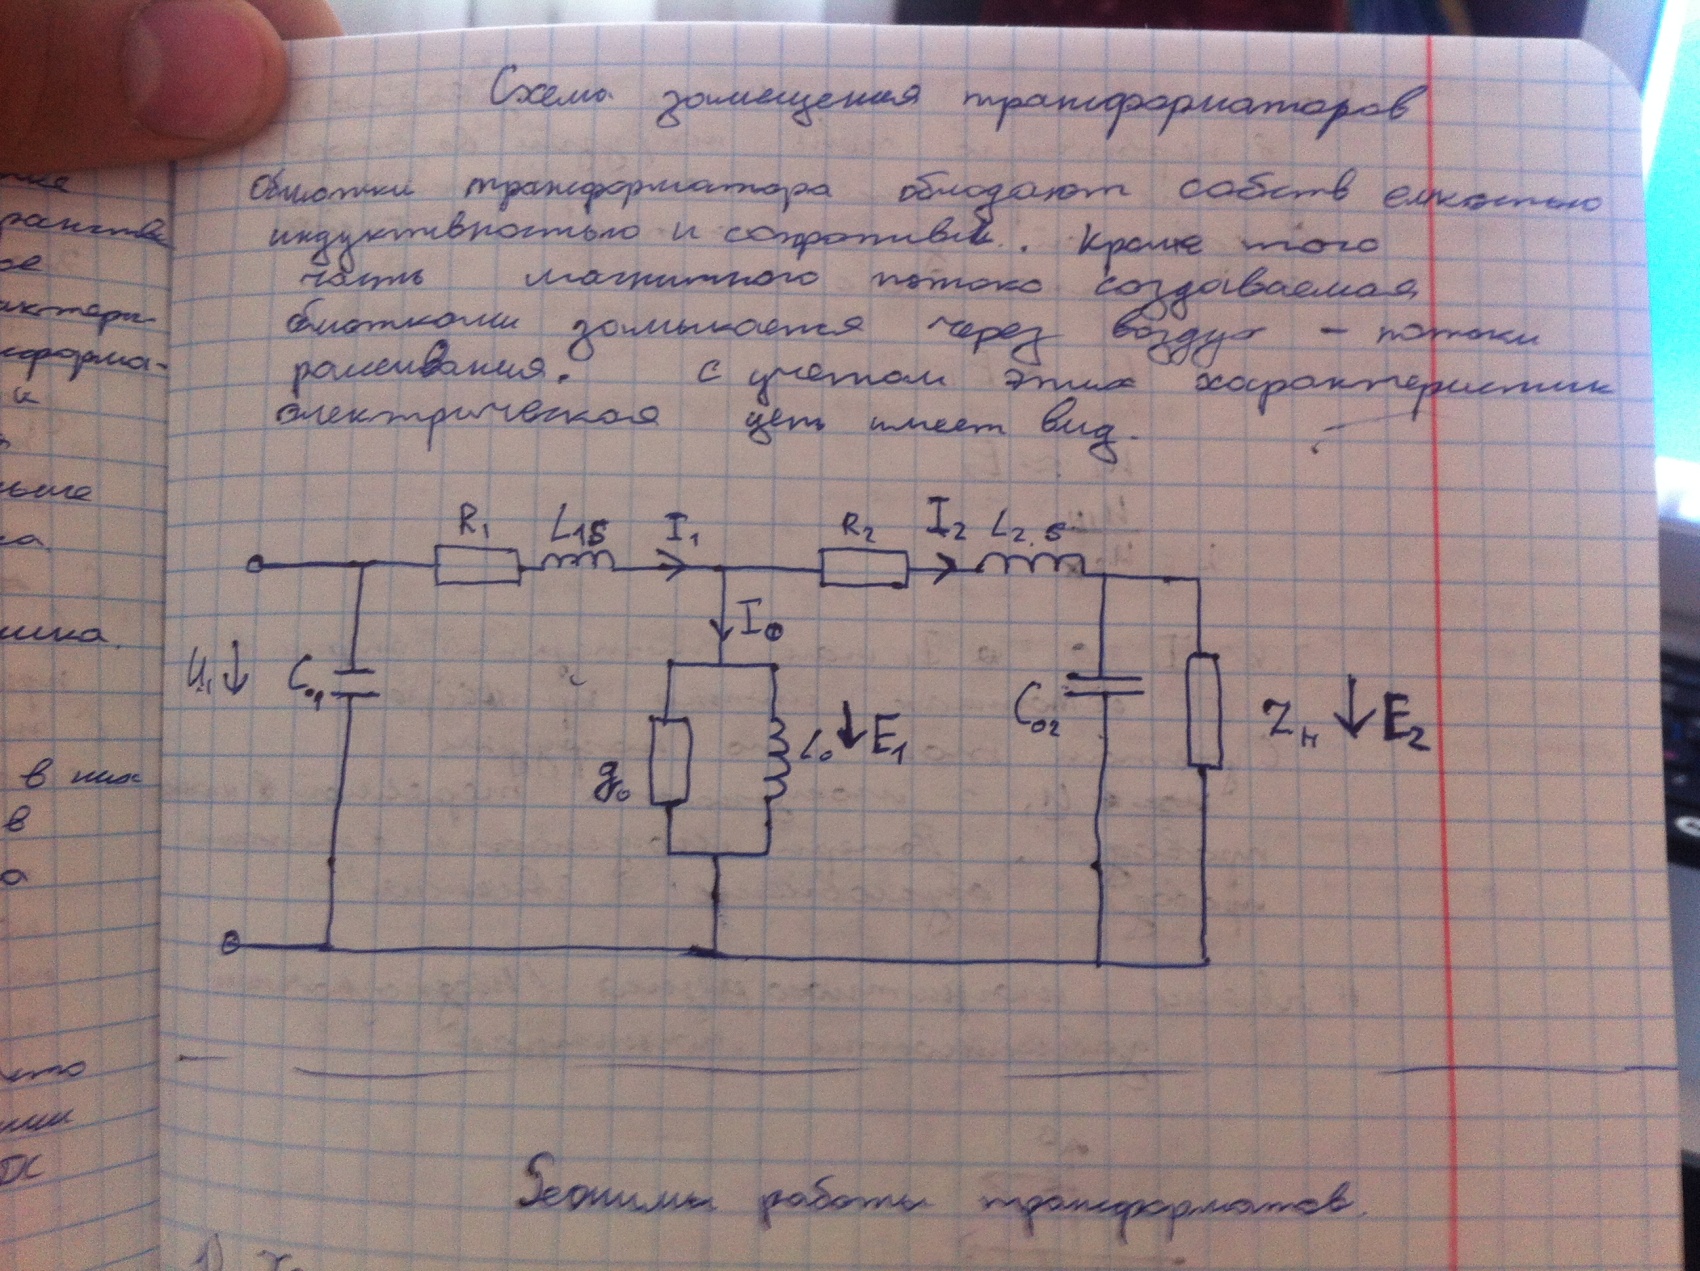 Схема замещения трансформаторов
Обмотки трансформатора обладают собств емкостью
индуктивностью и сопротивл. Кроме того
часть магнитного потока создаваемая
обмотками замыкается через воздух – потоки
рассивания. С учетом этих характеристик
электрическая цепь имеет вид.
R₁ L₁s I₁ R₂ I₂ L₂s
I₀
U₁ C₀₁ g₀ L₀ E₁ C₀₂ Zн E₂
Режимы работы трансформатов.
1)
ранств
ое
актери-
сформа-
и
ьше
в них
в
а
что